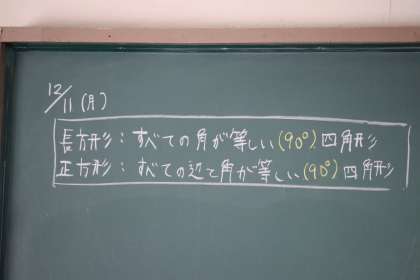 12/11(月)
長方形:すべての角が等しい(90°)四角形
正方形:すべての辺と角が等しい(90°)四角形